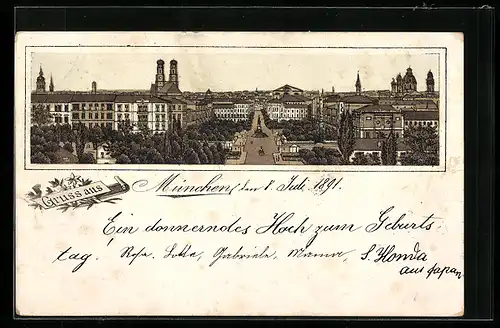 Gruss aus München, den 1. Juli 1891.
Ein donnerndes Hoch zum Geburts
tag! Rosa, Lotte, Gabriele, Mama, S. Honda
aus Japan.